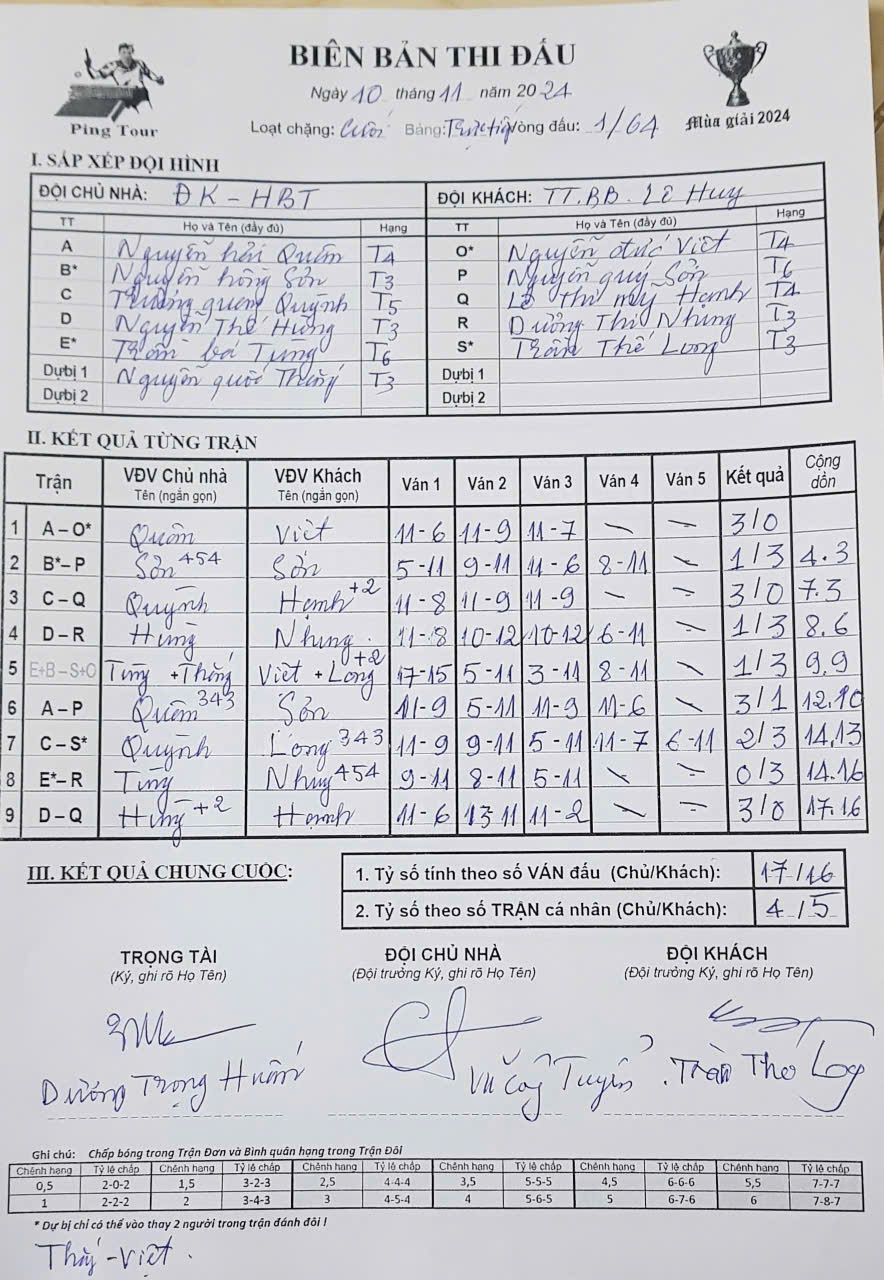 BIÊN BẢN THI ĐẤU
Ping Tour
Ngày 10 tháng 11 năm 2024
Mùa giải 2024
Loại chặng: Cuối Bảng: Trực tiếp Vòng đấu: 1/64
I. SẮP XẾP ĐỘI HÌNH
ĐỘI CHỦ NHÀ: ĐK - HBT ĐỘI KHÁCH: TT.BB. Lê Huy
TT Họ và Tên (đầy đủ) Hạng TT Họ và Tên (đầy đủ) Hạng
A Nguyễn hải Quân T4 O* Nguyễn đức Việt T4
B* Nguyễn hồng Sơn T3 P Nguyễn quý Sơn T6
C Trương quang Quỳnh T5 Q Lê thị mỹ Hạnh T4
D Nguyễn Thế Hưng T3 R Dương Thị Nhung T3
E* Trần bá Tùng T6 S* Trần Thế Long T3
Dự bị 1 Nguyễn quốc Thắng T3 Dự bị 1
Dự bị 2 Dự bị 2
II. KẾT QUẢ TỪNG TRẬN
Trận VĐV Chủ nhà Tên (ngắn gọn) VĐV Khách Tên (ngắn gọn) Ván 1 Ván 2 Ván 3 Ván 4 Ván 5 Kết quả Cộng dồn
1 A – O* Quân Việt 11-6 11-9 11-7 - - 3/0
2 B*– P Sơn 454 Sơn 5-11 9-11 11-6 8-11 - 1/3 4.3
3 C – Q Quỳnh Hạnh +2 11-8 11-9 11-9 - - 3/0 7.3
4 D – R Hưng Nhung. 11-8 10-12 10-12 6-11 - 1/3 8.6
5 E+B – S+O Tùng + Thắng Việt + Long +2 17-15 5-11 3-11 8-11 - 1/3 9.9
6 A – P Quân 343 Sơn 11-9 5-11 11-9 11-6 - 3/1 12.10
7 C – S* Quỳnh Long 343 11-9 9-11 5-11 11-7 6-11 2/3 14,13
8 E*– R Tùng Nhung 454 9-11 8-11 5-11 - - 0/3 14.16
9 D – Q Hưng +2 Hạnh 11-6 13-11 11-2 - - 3/0 17.16
III. KẾT QUẢ CHUNG CUỘC:
1. Tỷ số tính theo số VÁN đấu (Chủ/Khách): 17/16
2. Tỷ số theo số TRẬN cá nhân (Chủ/Khách): 4/5
TRỌNG TÀI ĐỘI CHỦ NHÀ ĐỘI KHÁCH
(Ký, ghi rõ Họ Tên) (Đội trưởng Ký, ghi rõ Họ Tên) (Đội trưởng Ký, ghi rõ Họ Tên)
Dương Trọng Huấn Vũ Tuyến. Trần Thế Long
Ghi chú: Chấp bóng trong Trận Đơn và Bình quân hạng trong Trận Đôi
Chênh hạng Tỷ lệ chấp Chênh hạng Tỷ lệ chấp Chênh hạng Tỷ lệ chấp Chênh hạng Tỷ lệ chấp Chênh hạng Tỷ lệ chấp Chênh hạng Tỷ lệ chấp
0,5 2-0-2 1,5 3-2-3 2,5 4-4-4 3,5 5-5-5 4,5 6-6-6 5,5 7-7-7
1 2-2-2 2 3-4-3 3 4-5-4 4 5-6-5 5 6-7-6 6 7-8-7
* Dự bị chỉ có thể vào thay 2 người trong trận đánh đôi !
Thắng - Việt.